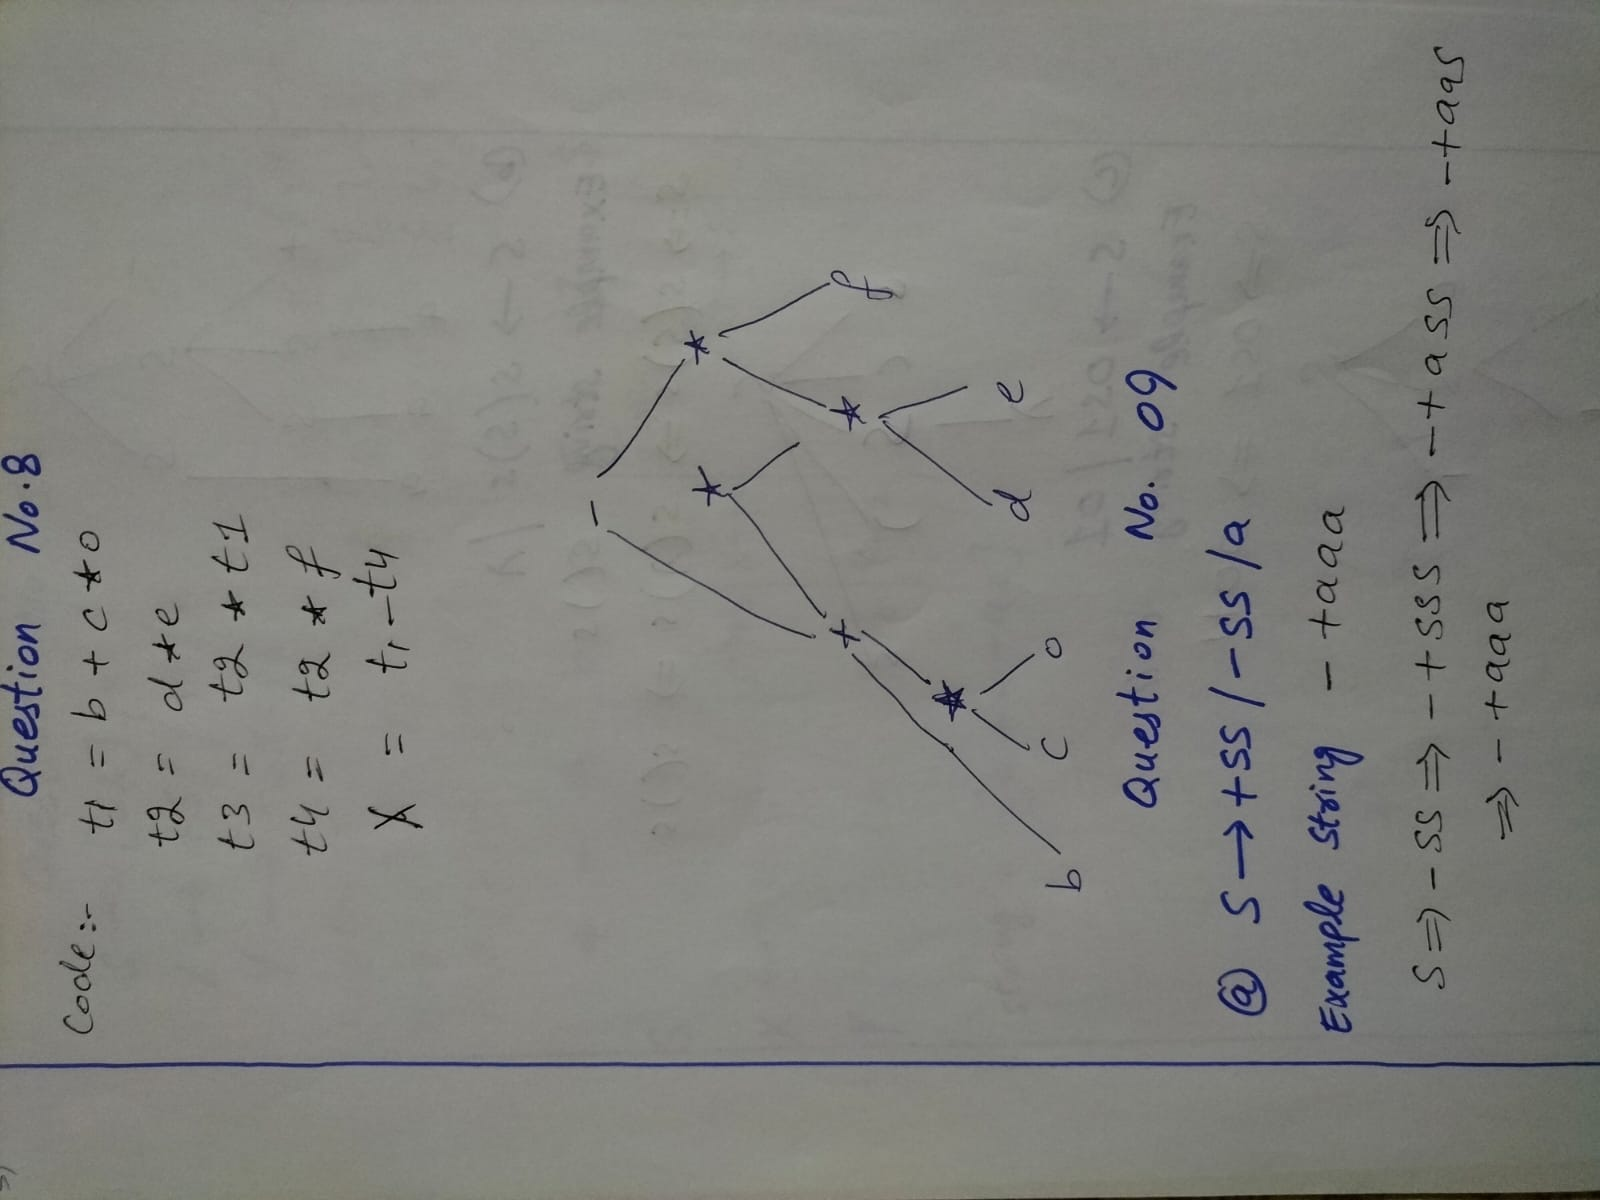 Question No.8
Code:- t1 = b + c * 0
t2 = d * e
t3 = t2 * t1
t4 = t2 * f
X = t1 - t4
-
* *
+ * f
* d e
b c 0
Question No. 09
(a) S → +SS / -SS / a
Example String - +aaa
S ⇒ -SS ⇒ -+SSS ⇒ -+aSS ⇒ -+aaS
⇒ -+aaa